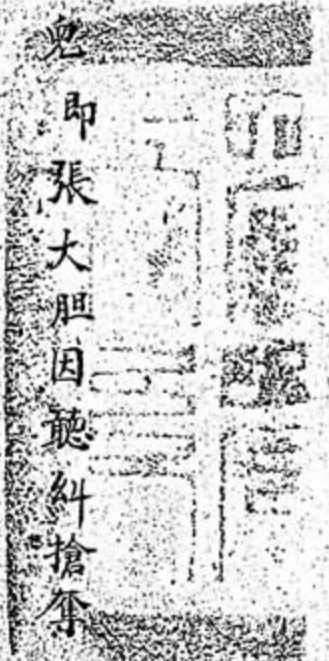 兒即張大胆因聽糾搶奪